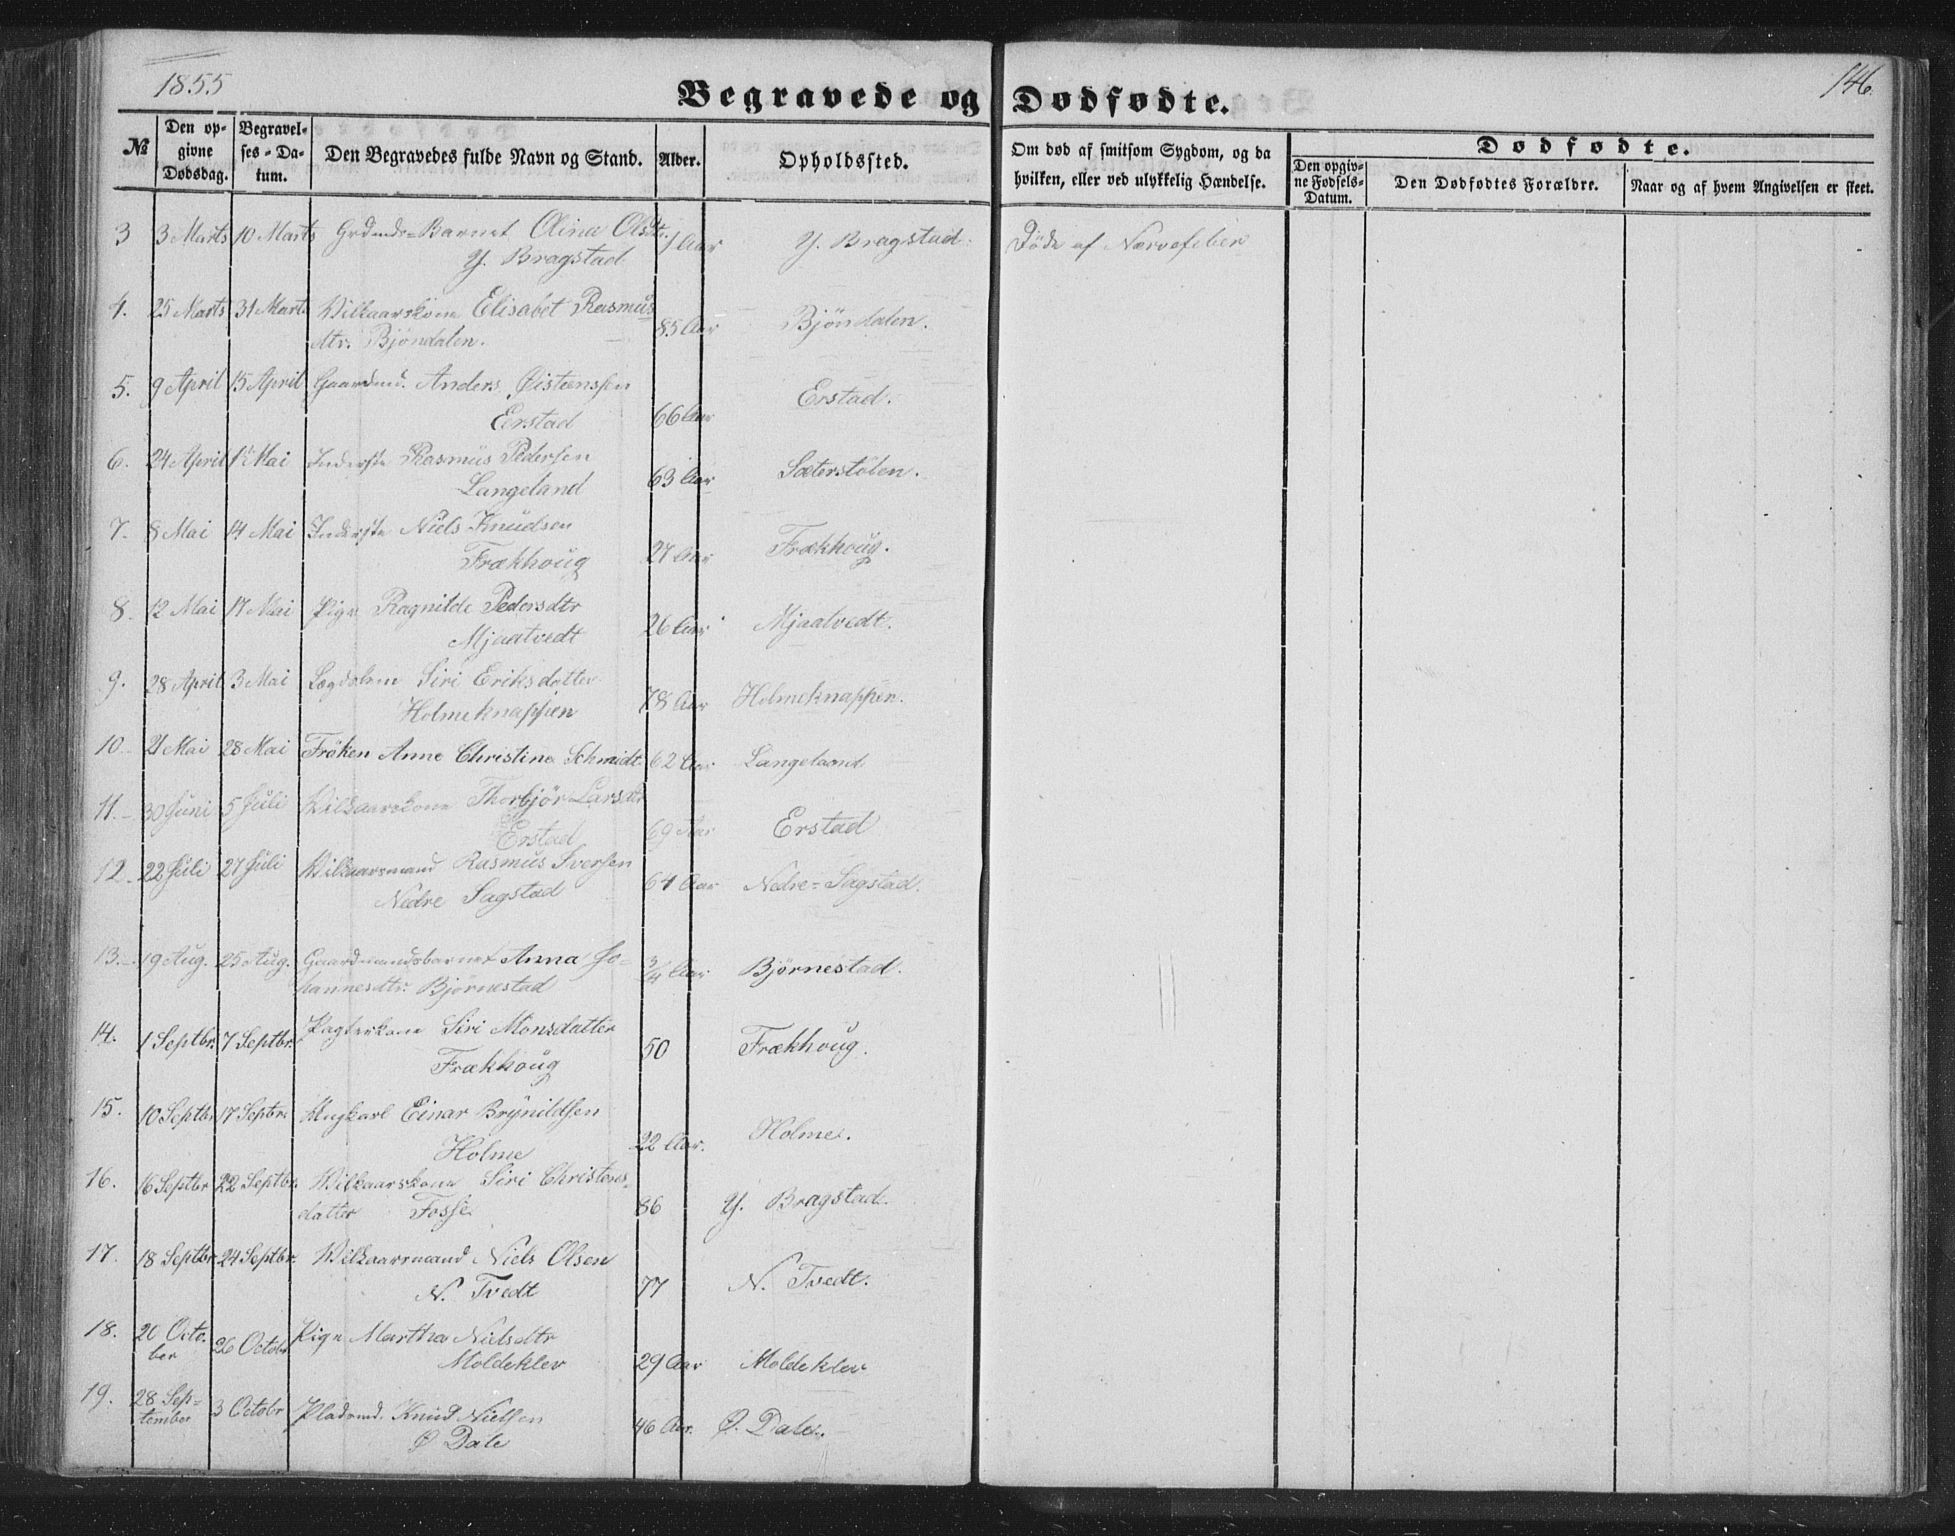 1855
146.
Begravede og Dødfødte.
№
Den opgivne Dødsdag.
Begravelses-Datum.
Den Begravedes fulde Navn og Stand.
Alder.
Opholdssted.
Om død af smitsom Sygdom, og da hvilken, eller ved ulykkelig Hændelse.
Dødfødte.
Den opgivne Fødsels-Datum.
Den Dødfødtes Forældre.
Naar og af hvem Angivelsen er skeet.
3 3 Marts 10 Marts Grdmds-Barnet Olina Olsdtr. 1 Aar Y. Bragstad. Døde af Nervefeber
Y. Bragstad
4. 25 Marts 31 Marts Vilkaarskone Elisabet Rasmus 85 Aar Bjöndalen.
dtr. Bjöndalen.
5. 9 April 15 April Gaardmd. Anders Østensen 66 Aar Erstad.
Eerstad
6. 24 April 1 Mai Inderste Rasmus Pedersen 63 Aar Sæterstölen.
Langeland
7. 8 Mai 14 Mai Inderste Niels Knudsen 27 Aar Frækhoug.
Frækhoug
8. 12 Mai 17 Mai Pige Ragnilde Pedersdtr 26 Aar Mjaatvedt.
Mjaatvedt
9. 28 April 3 Mai Lægdslem Siri Eriksdatter 78 Aar Holmeknappen.
Holmeknappen
10. 21 Mai 28 Mai Fröken Anne Christine Schmidt 62 Aar Langeland
11. 30 Juni 5 Juli Vilkaarskone Thorbjör Larsdtr 69 Aar Erstad
Erstad
12. 22 Juli 27 Juli Vilkaarsmand Rasmus Iversen 64 Aar Nedre-Sagstad.
Nedre Sagstad
13. 19 Aug. 25 Aug. Gaardmandsbarnet Anna Jo- 3/4 Aar Björnestad.
hannesdtr. Björnestad
14. 1 Septbr. 7 Septbr. Pagterkone Siri Monsdatter 50 Frækhoug.
Frækhoug
15. 10 Septbr 17 Septbr. Ungkarl Einar Brynildsen 22 Aar. Holme.
Holme
16. 16 Septbr 22 Septbr. Vilkaarskone Siri Christens- 86 Y. Bragstad.
datter Fosse
17. 18 Septbr. 24 Septbr. Vilkaarsmand Niels Olsen 77 N. Tvedt.
N. Tvedt
18. 20 Octo- 26 Octobr Pige Martha Nielsdtr 29 Aar Moldeklev
ber Moldeklev
19. 28 Sep- 3 Octobr Pladsmd. Knud Nielsen 46 Aar. Ø. Dale.
tember Ø Dale